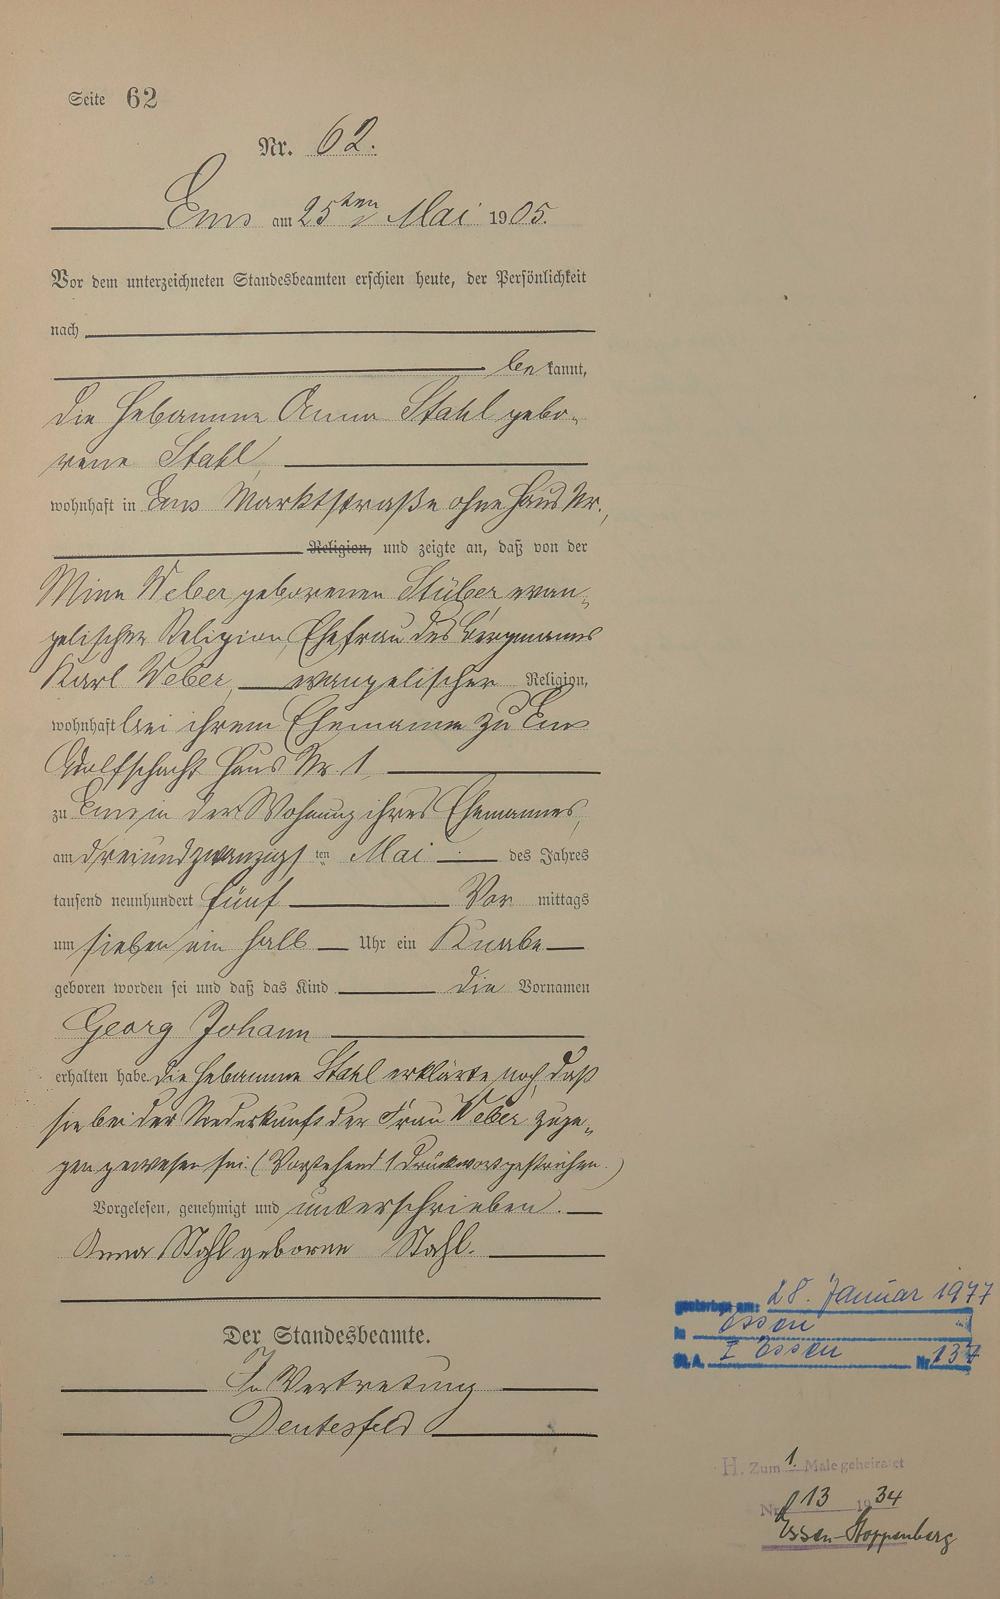 Seite 62
Nr. 62.
Ems am 25ten Mai 1905.
Vor dem unterzeichneten Standesbeamten erschien heute, der Persönlichkeit
nach
bekannt,
die Hebamme Anna Stahl gebo-
rene Stahl,
wohnhaft in Ems Marktstraße ohne Haus Nr.,
Religion, und zeigte an, daß von der
Mina Weber geborenen Stüber evan-
gelischer Religion, Ehefrau des Bergmanns
Karl Weber, evangelischer Religion,
wohnhaft bei ihrem Ehemanne zu Ems
Adolfschacht Haus Nr 1
zu Ems in der Wohnung ihres Ehemannes,
am dreiundzwanzigsten Mai des Jahres
tausend neunhundert fünf Vor mittags
um sieben ein halb Uhr ein Knabe
geboren worden sei und daß das Kind die Vornamen
Georg Johann
erhalten habe. Die Hebamme Stahl erklärte noch, daß
sie bei der Niederkunft der Frau Weber zuge-
gen gewesen sei. (Vorstehend 1 Druckwort gestrichen.)
Vorgelesen, genehmigt und unterschrieben.
Anna Stahl geborne Stahl.
Der Standesbeamte.
In Vertretung
Deutesfeld
gestorben am: 28. Januar 1977
in Essen
St.A. I Essen Nr. 137
H. Zum 1. Male geheiratet
Nr. 113 1934
Essen-Stoppenberg